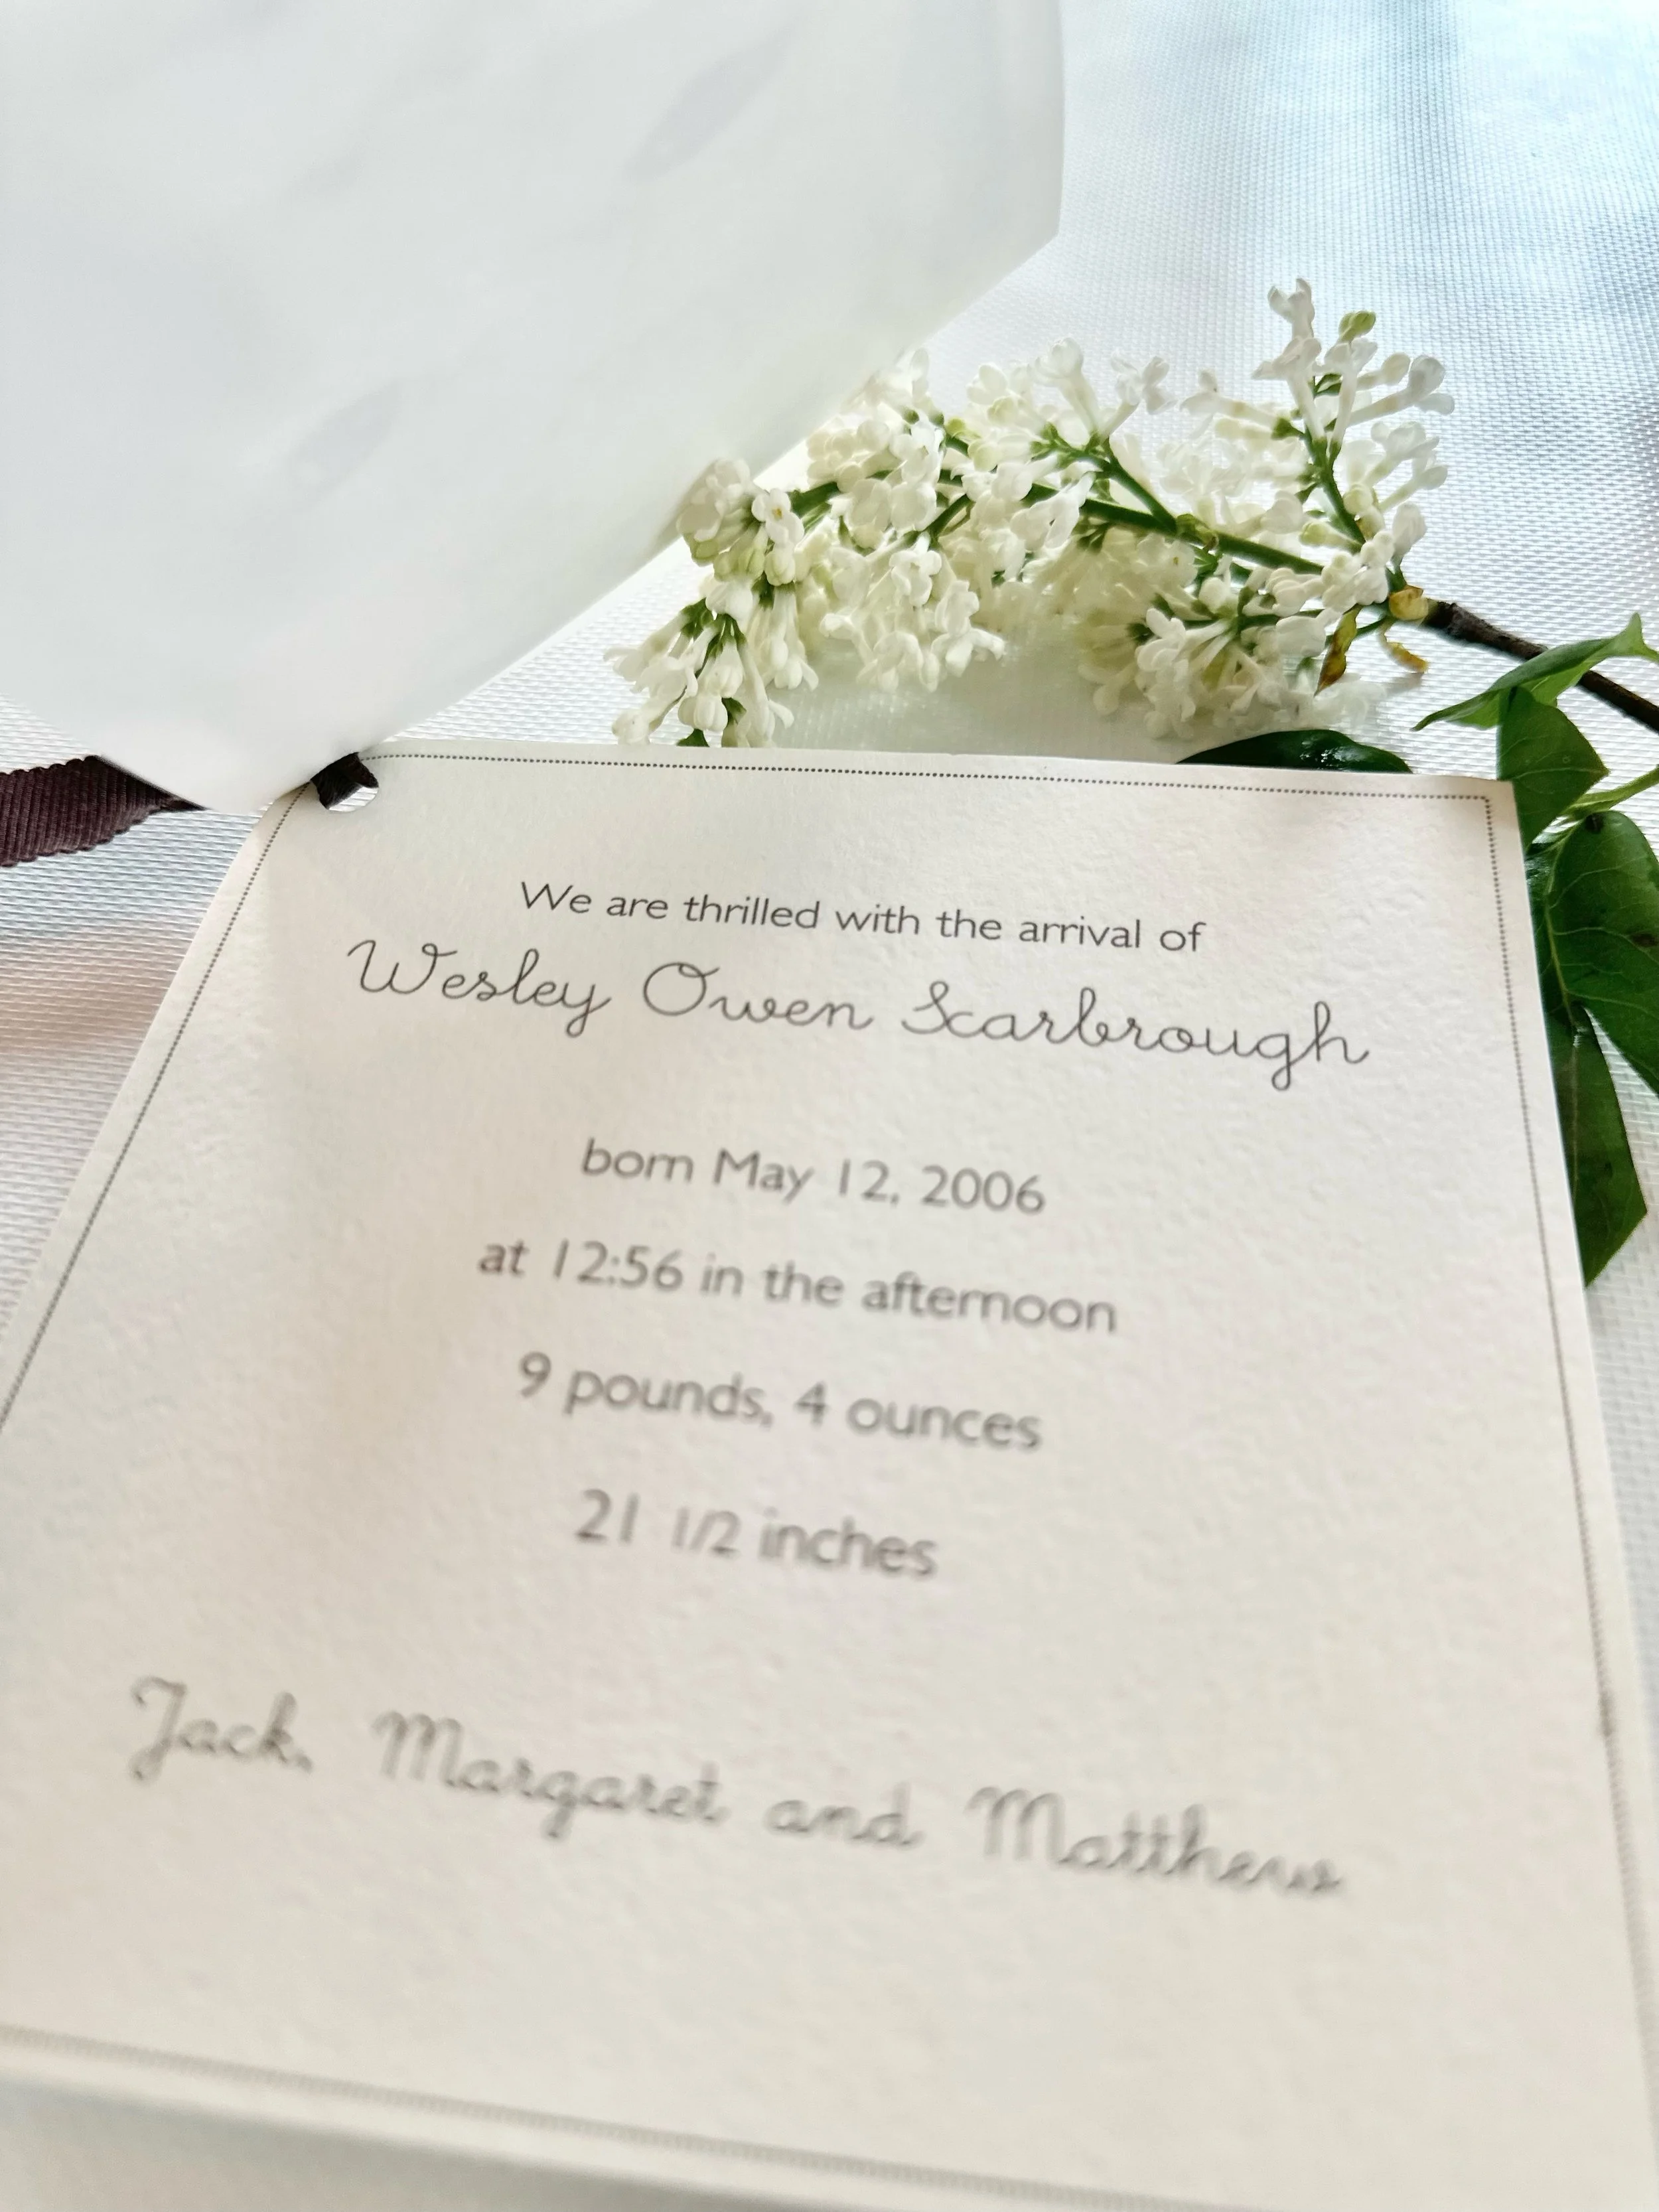 We are thrilled with the arrival of
Wesley Owen Scarbrough
born May 12, 2006
at 12:56 in the afternoon
9 pounds, 4 ounces
21 1/2 inches
Jack, Margaret and Matthew